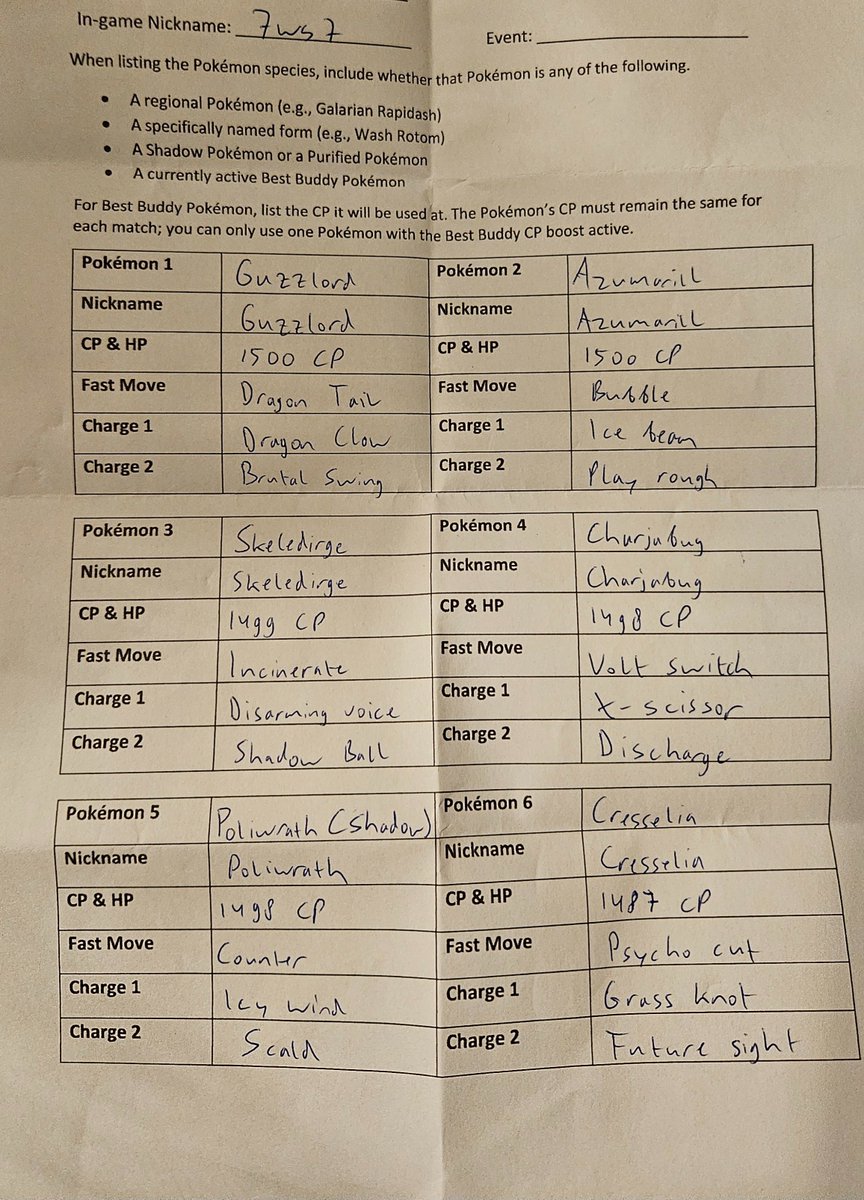 In-game Nickname: 7ws7 Event:
When listing the Pokémon species, include whether that Pokémon is any of the following.
• A regional Pokémon (e.g., Galarian Rapidash)
• A specifically named form (e.g., Wash Rotom)
• A Shadow Pokémon or a Purified Pokémon
• A currently active Best Buddy Pokémon
For Best Buddy Pokémon, list the CP it will be used at. The Pokémon's CP must remain the same for
each match; you can only use one Pokémon with the Best Buddy CP boost active.
Pokémon 1 Guzzlord Pokémon 2 Azumarill
Nickname Guzzlord Nickname Azumarill
CP & HP 1500 CP CP & HP 1500 CP
Fast Move Dragon Tail Fast Move Bubble
Charge 1 Dragon Claw Charge 1 Ice beam
Charge 2 Brutal Swing Charge 2 Play rough
Pokémon 3 Skeledirge Pokémon 4 Charjabug
Nickname Skeledirge Nickname Charjabug
CP & HP 1499 CP CP & HP 1498 CP
Fast Move Incinerate Fast Move Volt switch
Charge 1 Disarming voice Charge 1 X-scissor
Charge 2 Shadow Ball Charge 2 Discharge
Pokémon 5 Poliwrath (Shadow) Pokémon 6 Cresselia
Nickname Poliwrath Nickname Cresselia
CP & HP 1498 CP CP & HP 1487 CP
Fast Move Counter Fast Move Psycho cut
Charge 1 Icy wind Charge 1 Grass knot
Charge 2 Scald Charge 2 Future sight